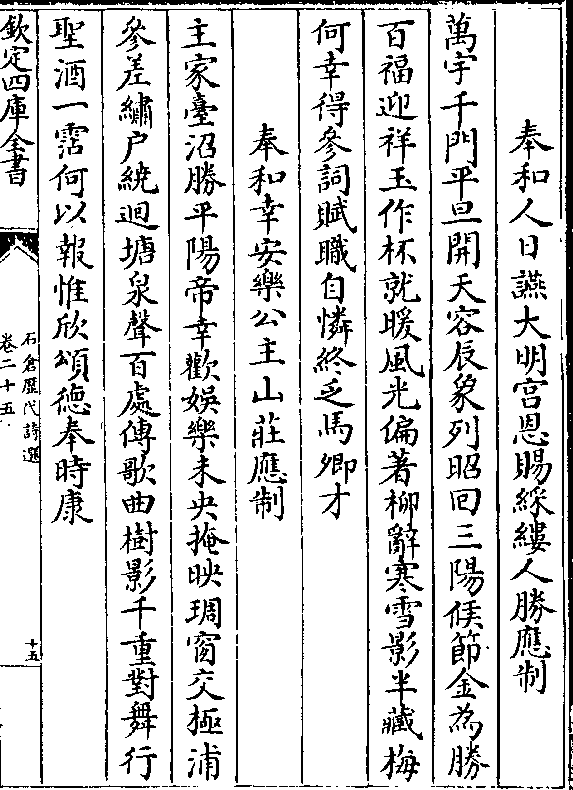 奉和人日讌大明宮恩賜綵縷人勝應制
萬宇千門平旦開天容辰象列昭回三陽候節金為勝
百福迎祥玉作杯就暖風光偏著柳辭寒雪影半藏梅
何幸得參詞賦職自憐終乏馬卿才
奉和幸安樂公主山莊應制
主家臺沼勝平陽帝幸歡娛樂未央掩映琱窗交極浦
參差繡户繞迴塘泉聲百處傳歌曲樹影千重對舞行
聖酒一霑何以報惟欣頌德奉時康
欽定四庫全書
石倉歴代詩選
卷二十五
十五